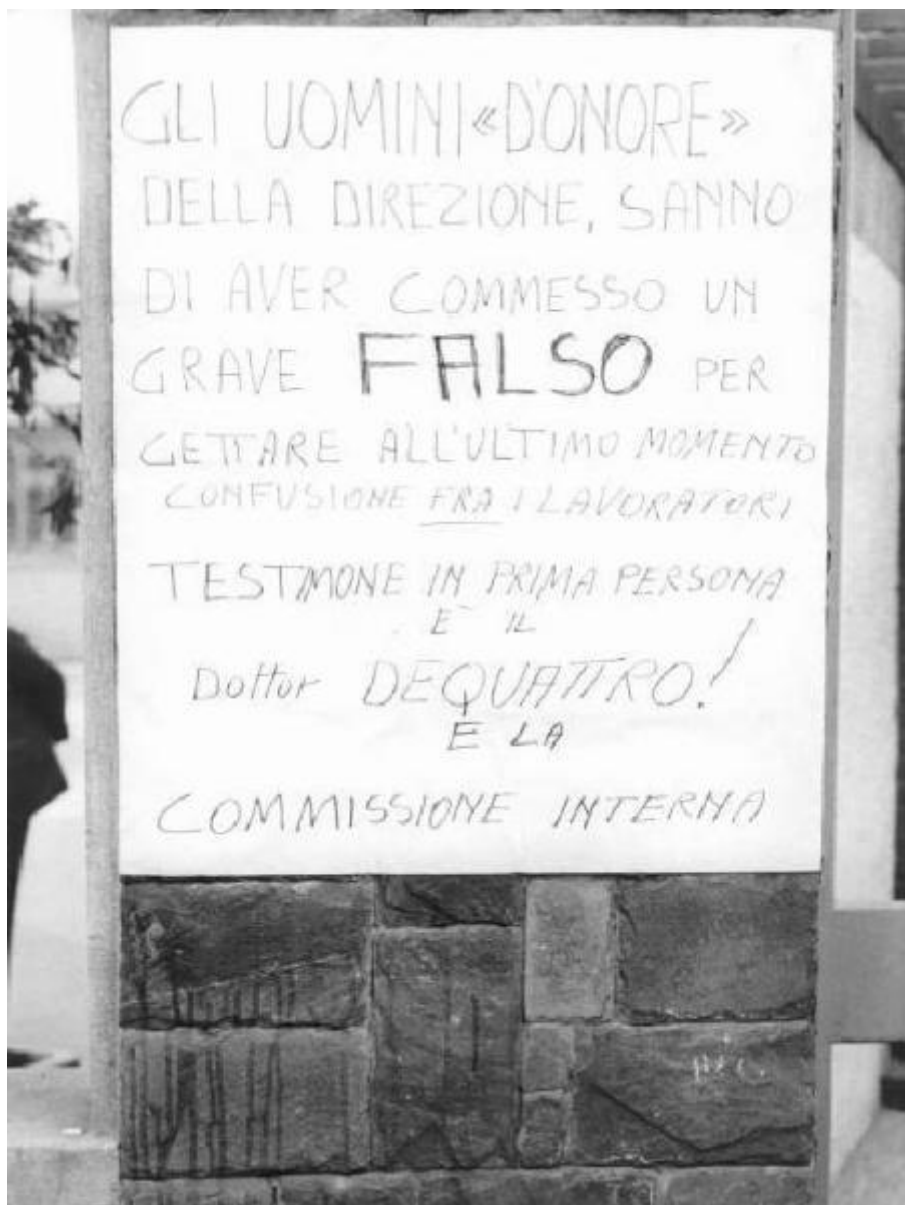 GLI UOMINI «D'ONORE»
DELLA DIREZIONE, SANNO
DI AVER COMMESSO UN
GRAVE FALSO PER
GETTARE ALL'ULTIMO MOMENTO
CONFUSIONE FRA I LAVORATORI
TESTIMONE IN PRIMA PERSONA
E' IL
Dottor DEQUATTRO!
E LA
COMMISSIONE INTERNA